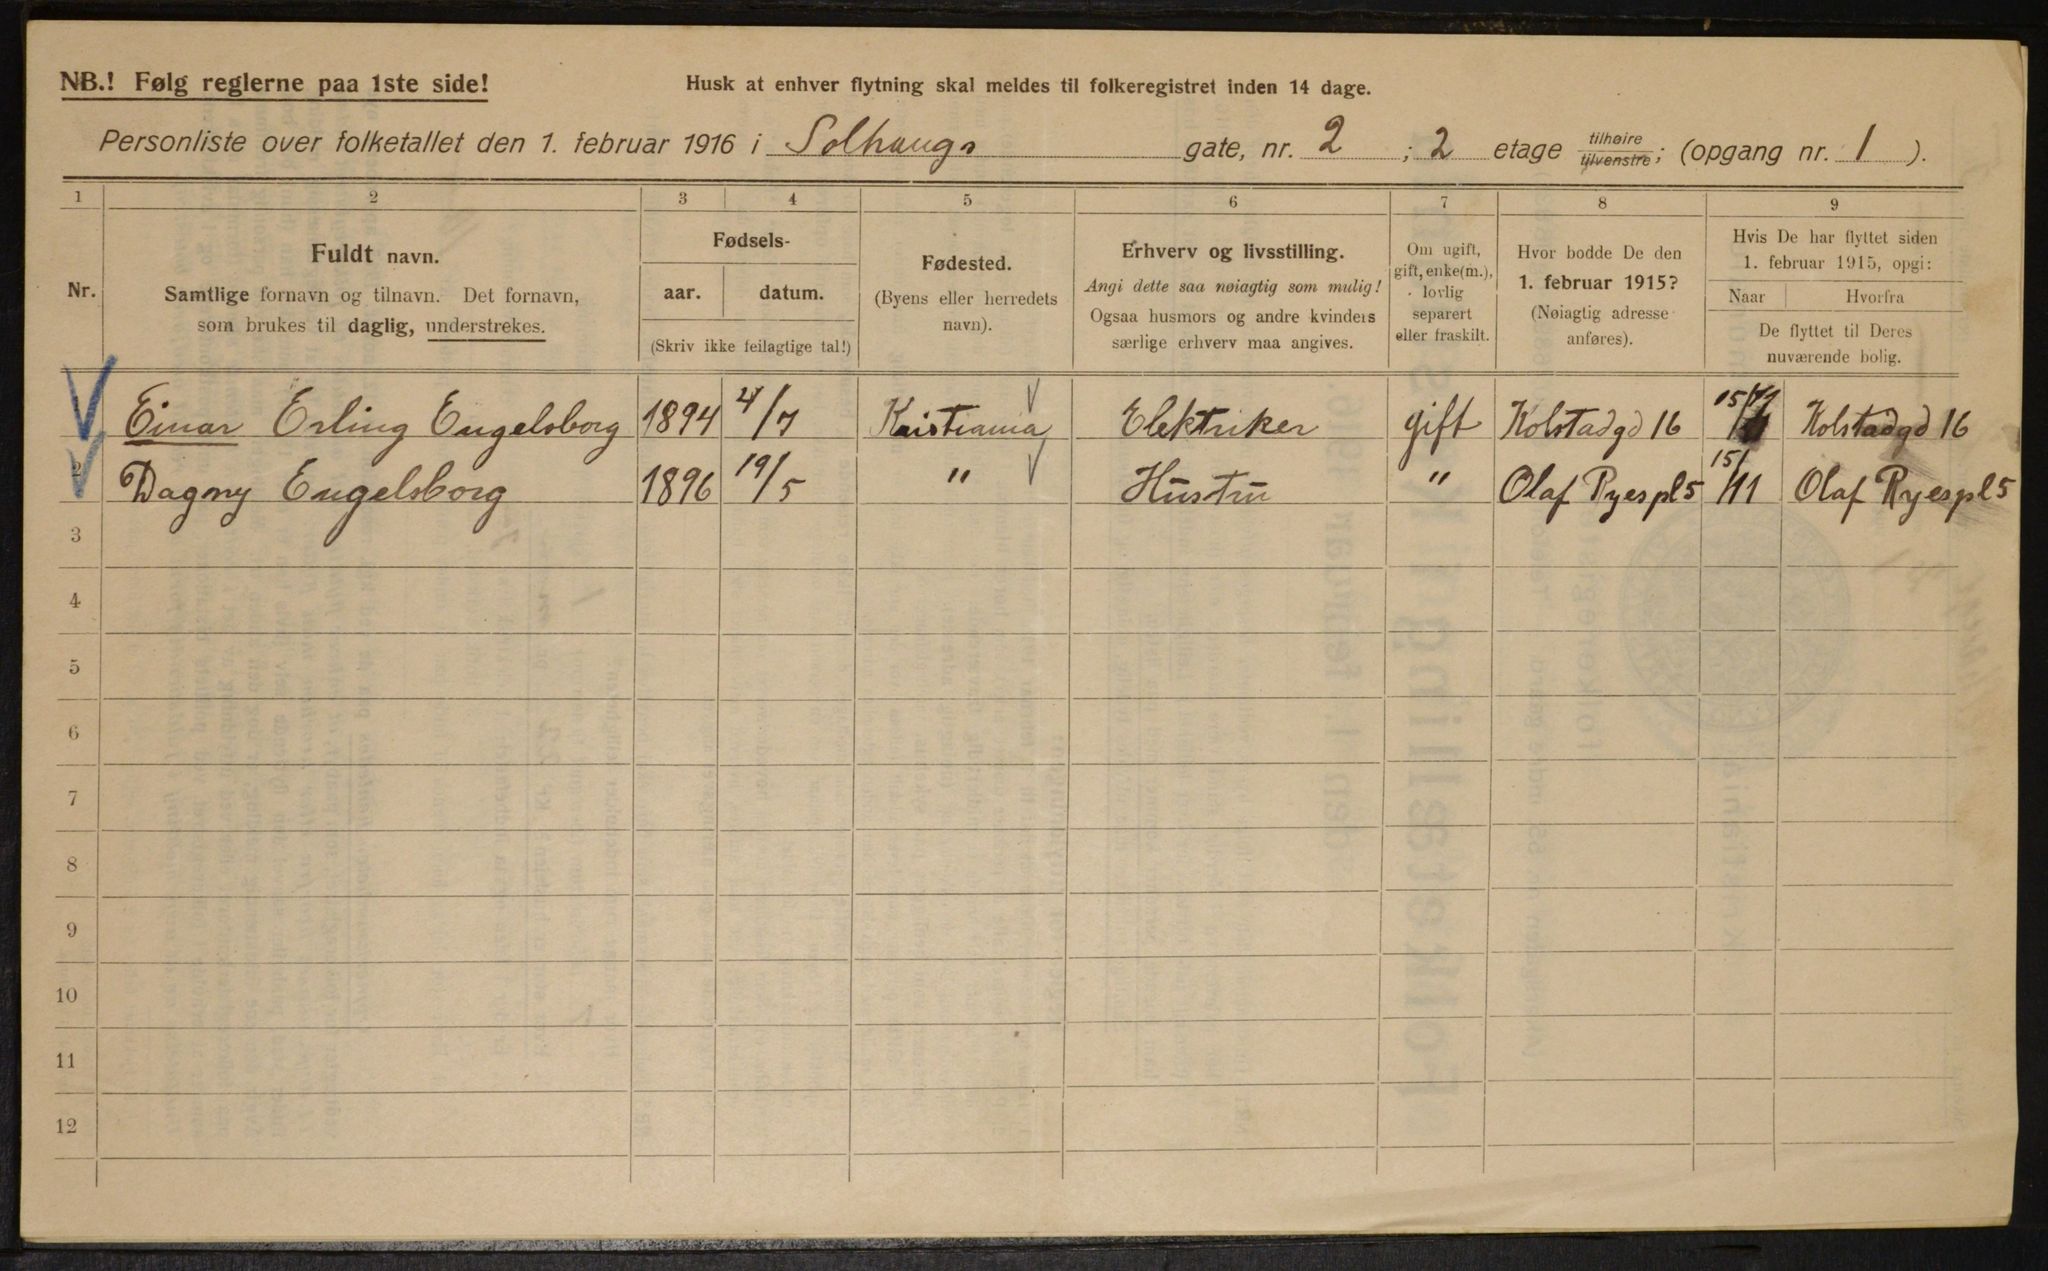 NB.! Følg reglerne paa 1ste side!
Husk at enhver flytning skal meldes til folkeregistret inden 14 dage.
Personliste over folketallet den 1. februar 1916 i Solhaugs gate, nr. 2 ; 2 etage tilhøire tilvenstre; (opgang nr. 1 ).
1 2 3 4 5 6 7 8 9
Nr.
Fuldt navn.
Samtlige fornavn og tilnavn. Det fornavn,
som brukes til daglig, understrekes.
Fødsels-
aar. datum.
(Skriv ikke feilagtige tal!)
Fødested.
(Byens eller herredets
navn).
Erhverv og livsstilling.
Angi dette saa nøiagtig som mulig!
Ogsaa husmors og andre kvinders
særlige erhverv maa angives.
Om ugift,
gift, enke(m.),
lovlig
separert
eller fraskilt.
Hvor bodde De den
1. februar 1915?
(Nøiagtig adresse
anføres).
Hvis De har flyttet siden
1. februar 1915, opgi:
Naar Hvorfra
De flyttet til Deres
nuværende bolig.
Einar Erling Engelsborg 1894 4/7 Kristiania Elektriker gift Kolstadgd 16 15/11 Kolstadgd 16
2 Dagny Engelsborg 1896 19/5 " Hustru " Olaf Ryespl 5 15/11 Olaf Ryespl 5
3
4
5
6
7
8
9
10
11
12